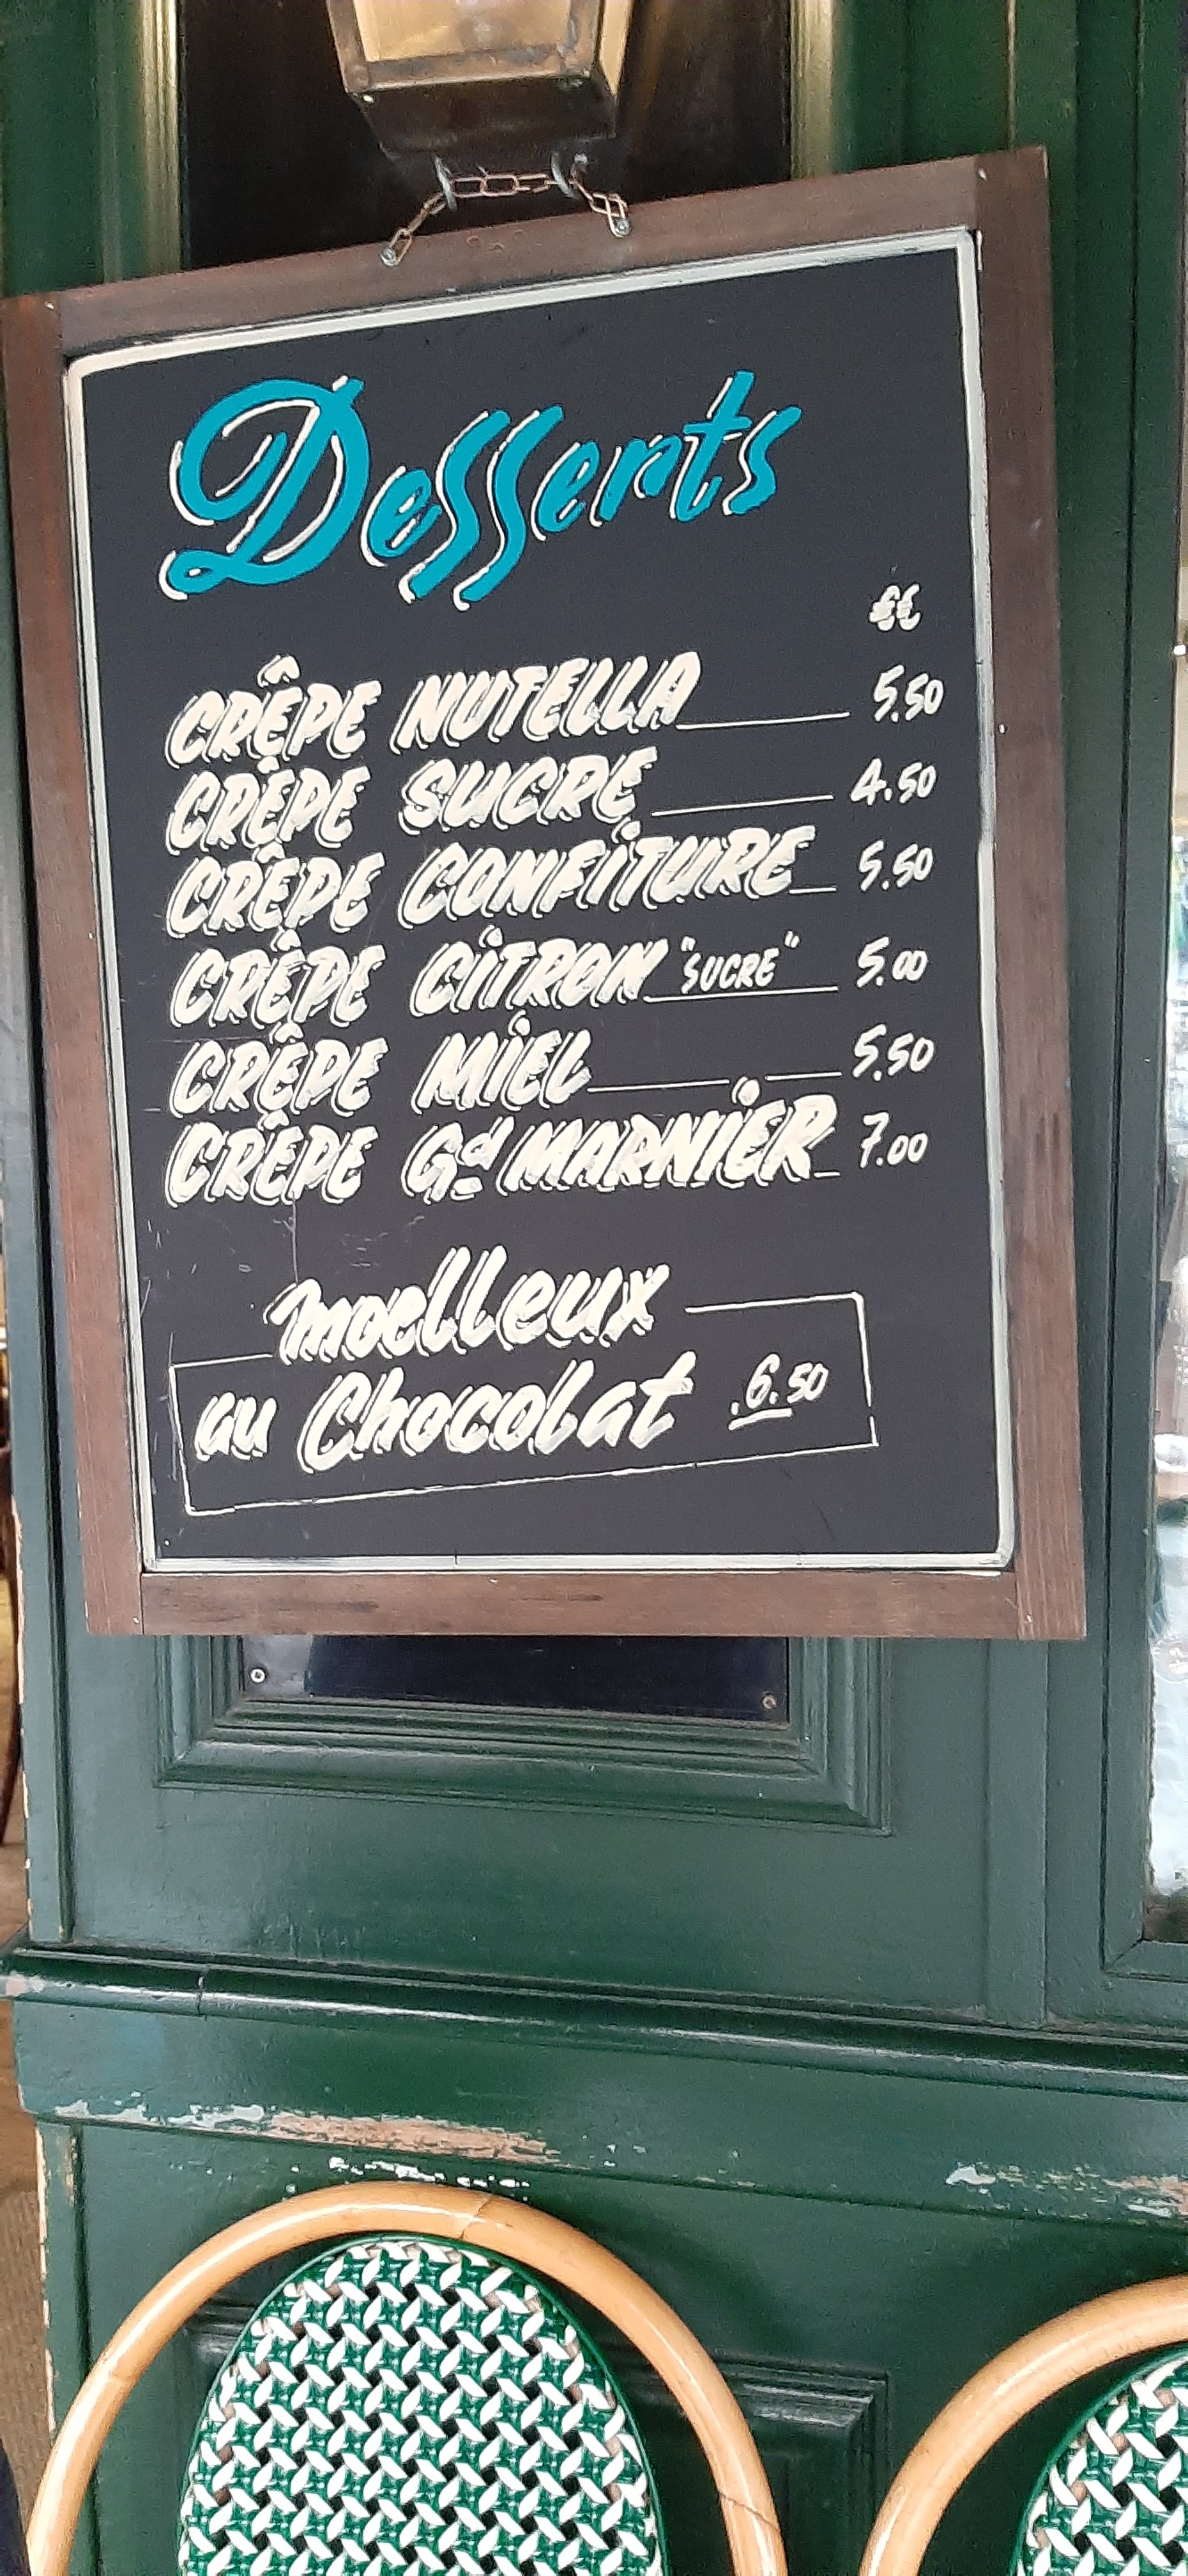 Desserts
€€
CRÊPE NUTELLA 5.50
CRÊPE SUCRE 4.50
CRÊPE CONFiTURE 5.50
CRÊPE CiTRON "SUCRE" 5.00
CRÊPE MiEL 5.50
CRÊPE Gd MARNiER 7.00
moelleux
au Chocolat 6.50